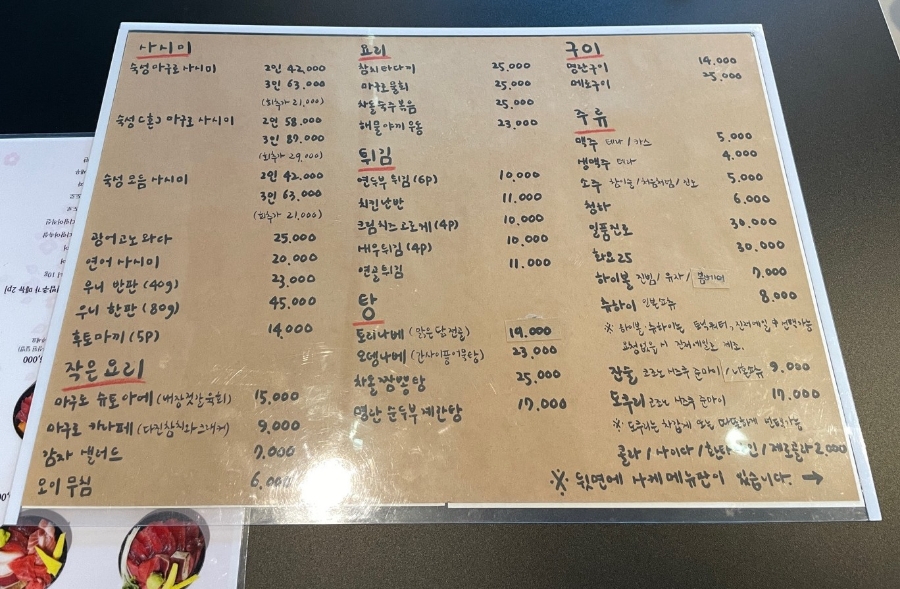 사시미
숙성 마구로 사시미 2인 42.000
3인 63.000
(회추가 21,000)
숙성 (혼) 마구로 사시미 2인 58.000
3인 87.000
(회추가 29,000)
숙성 모듬 사시미 2인 42.000
3인 63.000
(회추가 21,000)
광어고노와다 25.000
연어 사시미 20.000
우니 반판 (40g) 23.000
우니 한판 (80g) 45.000
후토마끼 (5P) 14.000
작은 요리
마구로 슈토아에 (내장젓갈육회) 15.000
마구로 카나페 (다진참치와크래커) 9.000
감자 샐러드 7.000
오이 무침 6.000
요리
참치타다끼 25.000
마구로물회 25.000
차돌숙주볶음 25.000
해물야끼우동 23.000
튀김
연두부 튀김 (6P) 10.000
치킨난반 11.000
크림치즈 고로케 (4P) 10.000
새우튀김 (4P) 10.000
연골튀김 11.000
탕
토리나베 (맑은닭전골) 19.000
오뎅나베 (간사이풍어묵탕) 23.000
차돌짬뽕탕 25.000
명란 순두부 계란탕 17.000
구이
명란구이 14.000
메로구이 25.000
주류
맥주 테라 / 카스 5.000
생맥주 테라 4.000
소주 참이슬 / 처음처럼 / 진로 5.000
청하 6.000
일품진로 30.000
화요 25 30.000
하이볼 진빔 / 유자 / 7.000
츄하이 일본소츄 8.000
※ 하이볼, 츄하이는 토닉워터, 진저에일 中 선택가능
요청없을 시 진저에일로 제조.
잔술 9.000
도쿠리 17.000
※ 도쿠리는 차갑게 또는 따뜻하게 선택가능
콜라 / 사이다 / 환타 / 제로콜라 2.000
※ 뒷면에 사케메뉴판이 있습니다. →